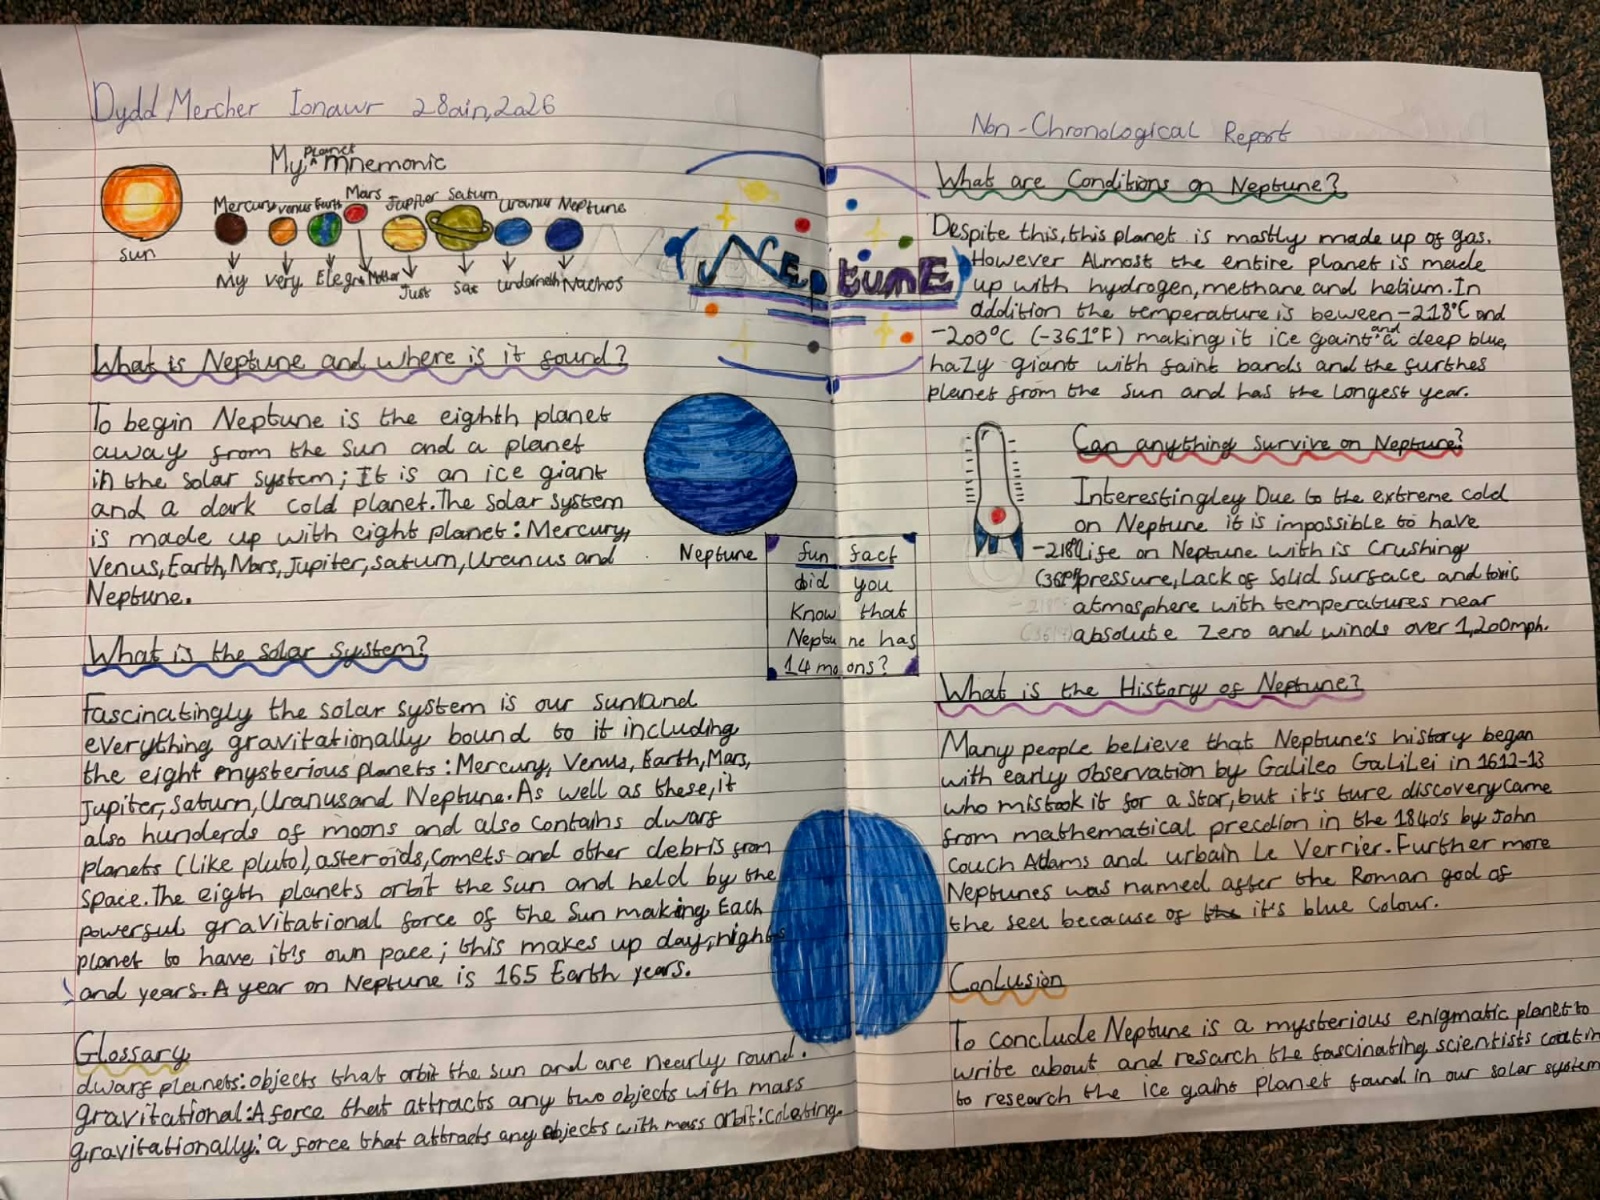 Dydd Mercher Ionawr 28ain, 2026
My planet mnemonic
Mercury Venus Earth Mars Jupiter Saturn Uranus Neptune
sun
My Very Elegant Mother Just Sat Underneath Nachos
What is Neptune and where is it found?
To begin Neptune is the eighth planet
away from the Sun and a planet
in the solar system; It is an ice giant
and a dark cold planet. The Solar System
is made up with eight planet: Mercury,
Venus, Earth, Mars, Jupiter, Saturn, Uranus and
Neptune.
What is the solar System?
Fascinatingly the solar system is our sun and
everything gravitationally bound to it including
the eight mysterious planets: Mercury, Venus, Earth, Mars,
Jupiter, Saturn, Uranus and Neptune. As well as these, it
also hunderds of moons and also contains dwarf
planets (like pluto), asteroids, comets and other debris from
space. The eigth planets orbit the Sun and held by the
powerful gravitational force of the Sun making Each
planet to have it's own pace; this makes up day, nights
and years. A year on Neptune is 165 Earth years.
Glossary
dwarf planets: objects that orbit the sun and are nearly round.
gravitational: A force that attracts any two objects with mass
gravitationally: a force that attracts any objects with mass orbit:
NEptunE
Neptune
fun fact
did you
Know that
Neptune has
14 moons?
Non-Chronological Report
What are Conditions on Neptune?
Despite this, this planet is mostly made up of gas.
However Almost the entire planet is made
up with hydrogen, methane and helium. In
addition the temperature is beween -218°C and
-200°C (-361°F) making it ice gaint and a deep blue,
hazy giant with faint bands and the furthes
planet from the Sun and has the Longest year.
Can anything survive on Neptune?
Interestingley Due to the extreme cold
on Neptune it is impossible to have
-218° Life on Neptune with is Crushing
pressure, Lack of Solid Surface and toxic
atmosphere with temperatures near
absolute Zero and winds over 1,200mph.
What is the History of Neptune?
Many people believe that Neptune's history began
with early observation by Galileo Galilei in 1612-13
who mistook it for a star, but it's ture discovery came
from mathematical in the 1840's by John
Couch Adams and urbain Le Verrier. Further more
Neptunes was named after the Roman god of
the sea because of the it's blue Colour.
Conlusion
To conclude Neptune is a mysterious enigmatic planet to
write about and resarch the fascinating scientists
to research the ice gaint planet found in our solar system